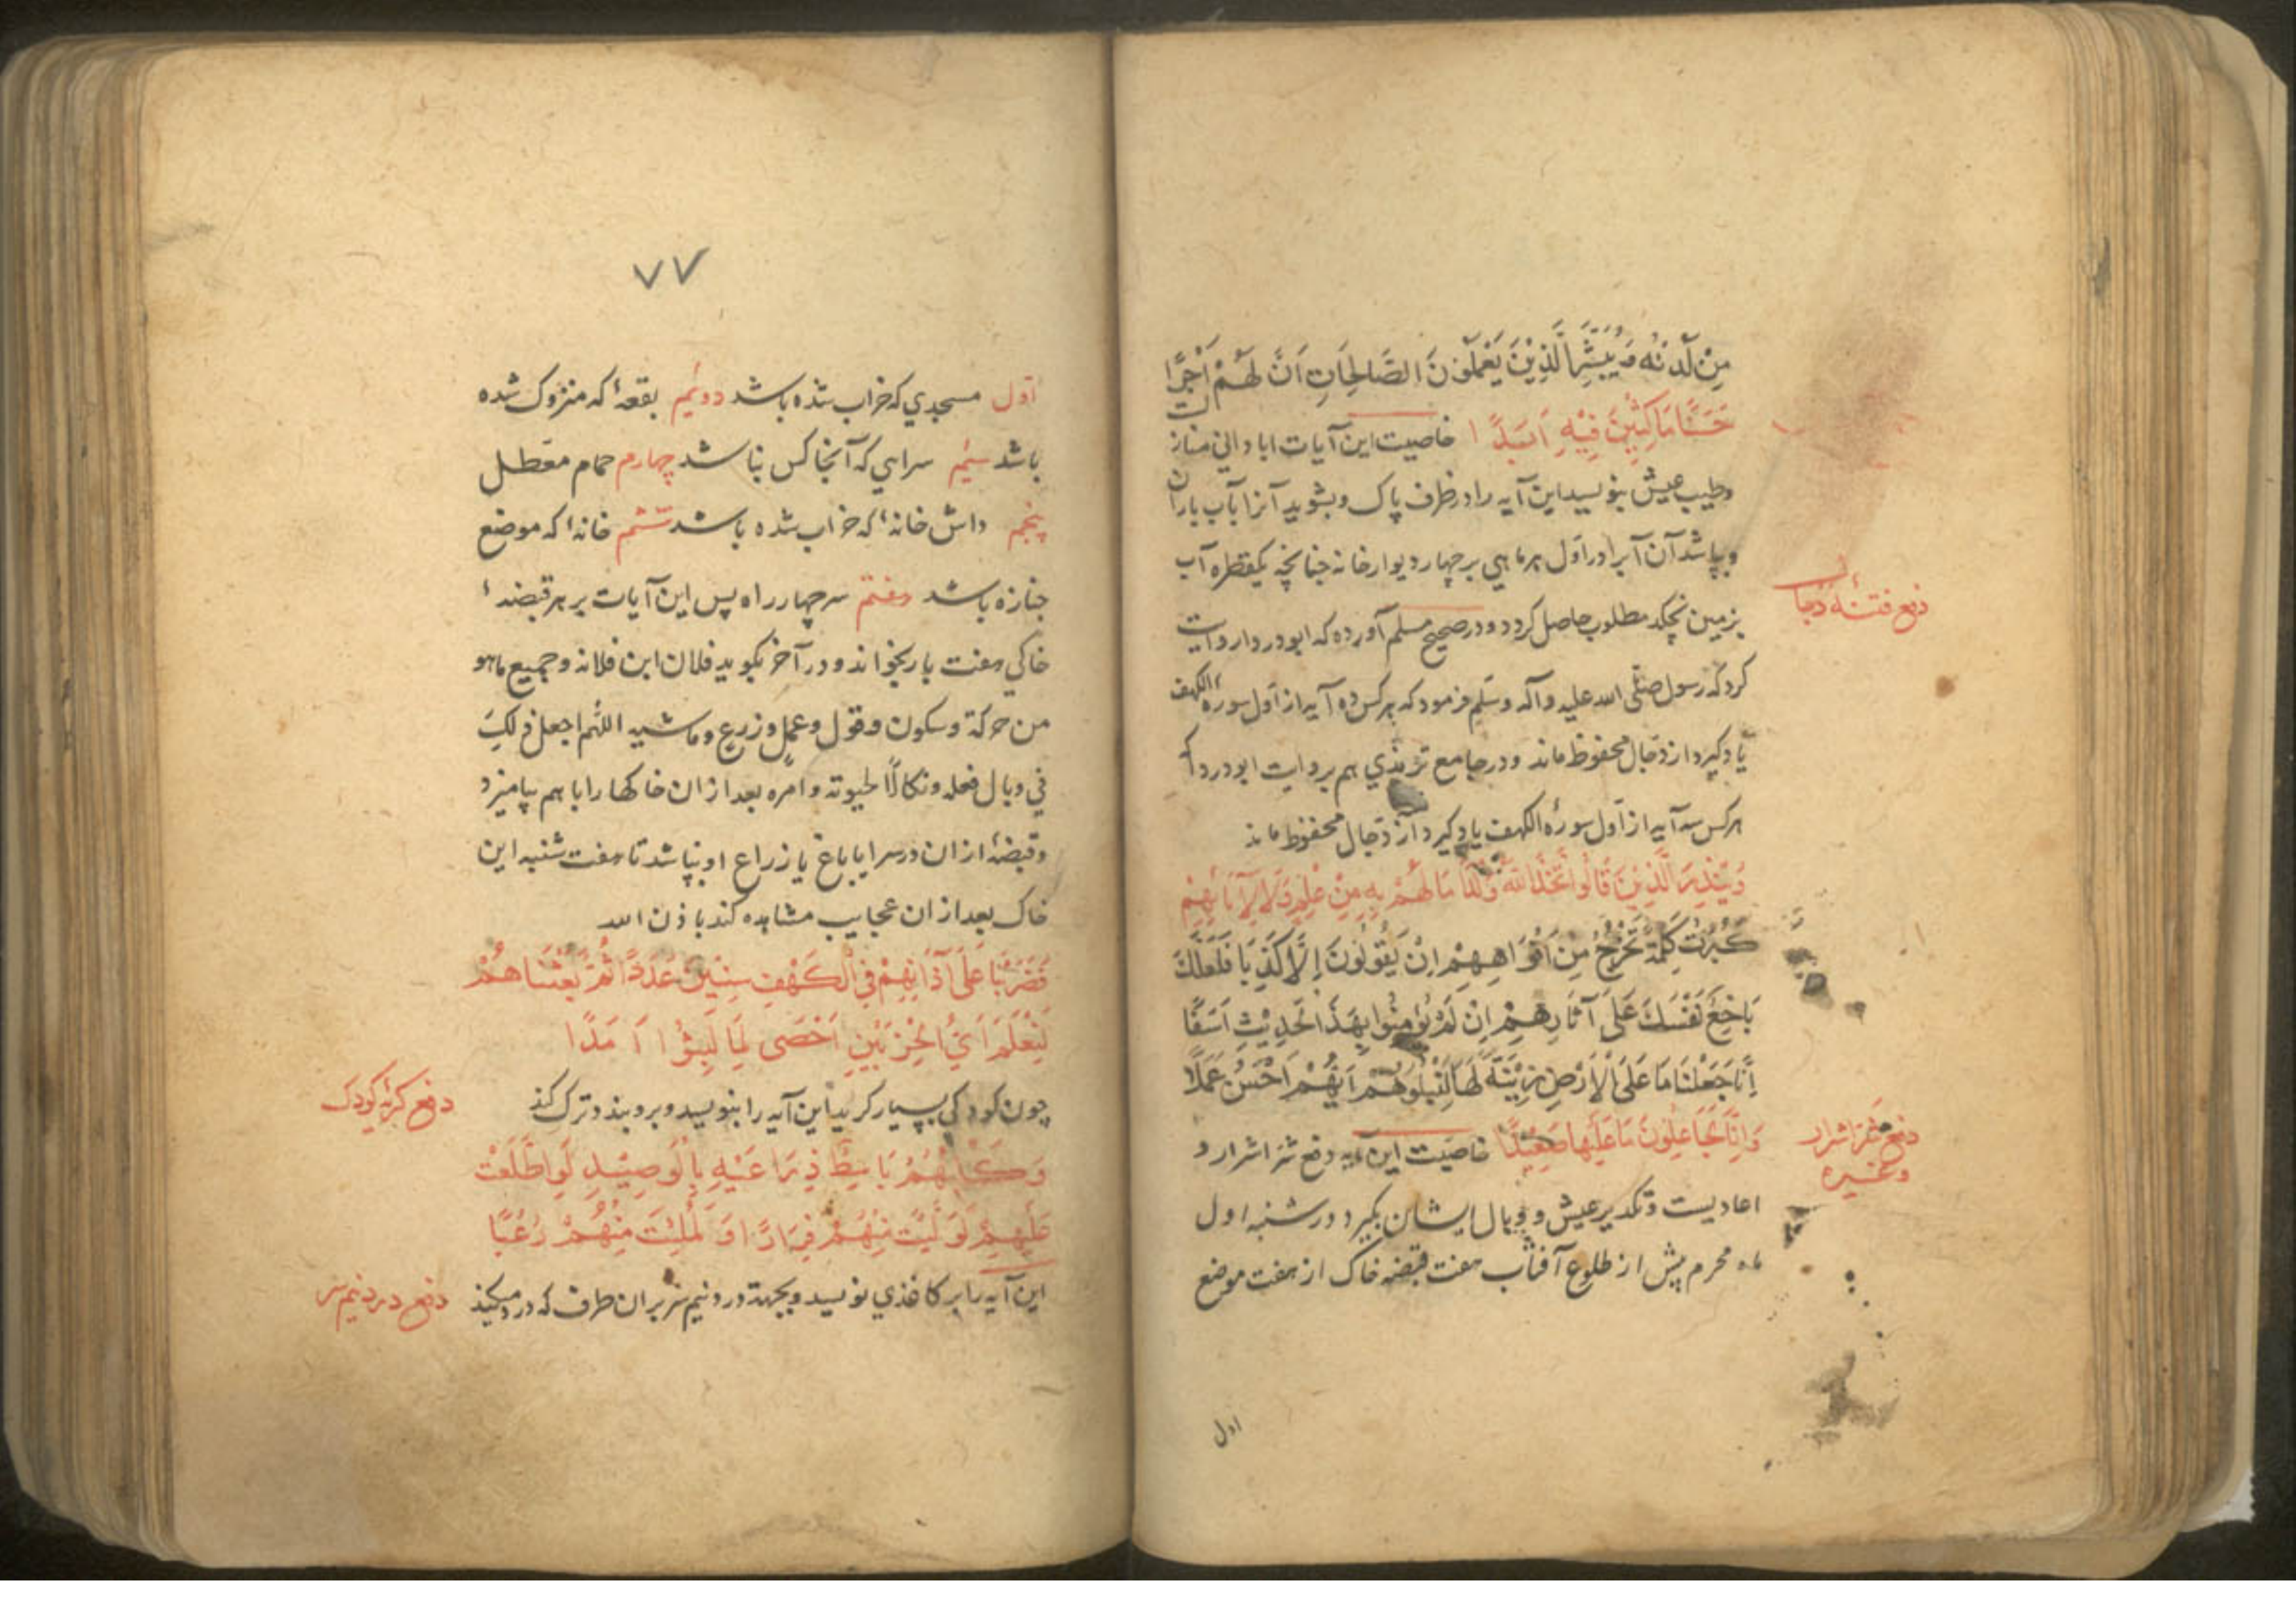 مِنْ لَدُنْهُ وَيُبَشِّرَ الَّذِيْنَ يَعْمَلُوْنَ الصَّالِحَاتِ اَنَّ لَهُمْ اَجْرًا
حَسَنًا مَاكِثِيْنَ فِيْهِ اَبَدًا خاصیت این آیات ابادانی منازلت
وطیب عیش بنویسد این آیه را در ظرف پاک و بشوید آنرا بآب باران
و بپاشد آن آبرا در اول هر ماهی بر چهار دیوار خانه چنانچه یکقطره آب
بزمین نچکد مطلوب حاصل کردد و در صحیح مسلم آورده که ابو دردا روایت
دفع فتنهٔ دجال
کرد که رسول صلّی الله علیه وآله وسلّم فرمود که هر کس ده آیه از اول سورهٔ الکهف
یاد کیرد از دجال محفوظ ماند و در جامع ترمذي هم بروایت ابودردا که
هر کس سه آیه از اول سورهٔ الکهف یاد کیرد از دجال محفوظ ماند
وَيُنْذِرَ الَّذِيْنَ قَالُوا اتَّخَذَ اللّٰهُ وَلَدًا مَا لَهُمْ بِهِ مِنْ عِلْمٍ وَلَا لِآبَائِهِمْ
كَبُرَتْ كَلِمَةً تَخْرُجُ مِنْ اَفْوَاهِهِمْ اِنْ يَقُوْلُوْنَ اِلَّا كَذِبًا فَلَعَلَّكَ
بَاخِعٌ نَفْسَكَ عَلَى آثَارِهِمْ اِنْ لَمْ يُؤْمِنُوا بِهَذَا الْحَدِيْثِ اَسَفًا
اِنَّا جَعَلْنَا مَا عَلَى الْاَرْضِ زِيْنَةً لَهَا لِنَبْلُوَهُمْ اَيُّهُمْ اَحْسَنُ عَمَلًا
وَاِنَّا لَجَاعِلُوْنَ مَا عَلَيْهَا صَعِيْدًا خاصیت این آیه دفع شر اشرار و
دفع شر اشرار
وغیره
اعادیست و تکدیر عیش و وبال ایشان بکیرد در شنبه اول
ماه محرم پیش از طلوع آفتاب هفت قبضه خاک از هفت موضع
اول
۷۷
اول مسجدي که خراب شده باشد دوئیم بقعهٔ که متروک شده
باشد سیم سراي که آنجا کس نباشد چهارم حمام معطل
پنجم داش خانهٔ که خراب شده باشد ششم خانهٔ که موضع
جنازه باشد هفتم سر چهار راه پس این آیات بر هر قبضهٔ
خاکي هفت بار بخواند و در آخر بکوید فلان ابن فلانه وجمیع ماهو
من حرکة وسکون وقول وعمل وزرع وماشیه اللهم اجعل ذلک
في وبال فعله ونکالًا لحیوته وامره بعد از ان خاکها را با هم بیامیزد
و قبضهٔ از ان در سرا یا باغ یا زراع او بپاشد تا هفت شنبه این
خاک بعد از ان عجایب مشاهده کند باذن الله
فَضَرَبْنَا عَلَى آذَانِهِمْ فِي الْكَهْفِ سِنِيْنَ عَدَدًا ثُمَّ بَعَثْنَاهُمْ
لِنَعْلَمَ اَيُّ الْحِزْبَيْنِ اَحْصَى لِمَا لَبِثُوا اَمَدًا
چون کودکي بسیار کرید این آیه را بنویسد و برو بندد ترک کند
دفع کریه کودک
وَكَلْبُهُمْ بَاسِطٌ ذِرَاعَيْهِ بِالْوَصِيْدِ لَوِ اطَّلَعْتَ
عَلَيْهِمْ لَوَلَّيْتَ مِنْهُمْ فِرَارًا وَلَمُلِئْتَ مِنْهُمْ رُعْبًا
این آیه را بر کاغذي نویسد و بجهة درد نیم سر بر ان طرف که درد میکند
دفع درد نیم سر